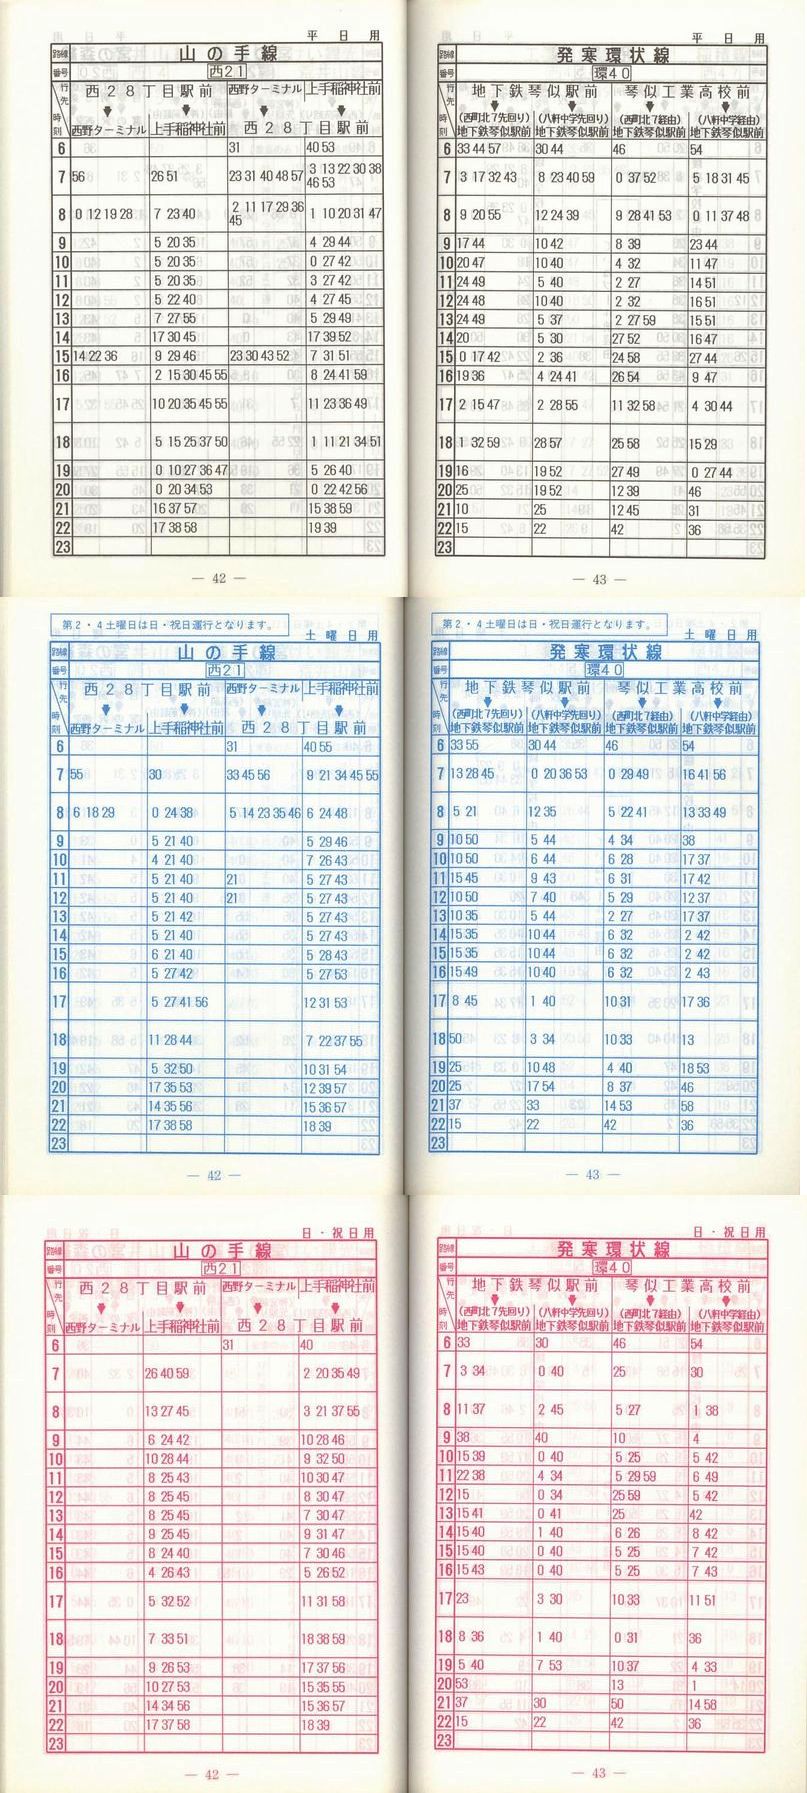 平日用
路線 山の手線
番号 西21
行先 西28丁目駅前 西野ターミナル 上手稲神社前
時刻 西野ターミナル 上手稲神社前 西28丁目駅前
6 31 40 53
7 56 26 51 23 31 40 48 57 3 13 22 30 38
46 53
8 0 12 19 28 7 23 40 2 11 17 29 36 1 10 20 31 47
45
9 5 20 35 4 29 44
10 5 20 35 0 27 42
11 5 20 35 3 27 42
12 5 22 40 4 27 45
13 7 27 55 5 29 49
14 17 30 45 17 39 52
15 14 22 36 9 29 46 23 30 43 52 7 31 51
16 2 15 30 45 55 8 24 41 59
17 10 20 35 45 55 11 23 36 49
18 5 15 25 37 50 1 11 21 34 51
19 0 10 27 36 47 5 26 40
20 0 20 34 53 0 22 42 56
21 16 37 57 15 38 59
22 17 38 58 19 39
23
— 42 —
平日用
路線 発寒環状線
番号 環40
行先 地下鉄琴似駅前 琴似工業高校前
(西町北7先回り) (八軒中学先回り) (西町北7経由) (八軒中学経由)
時刻 地下鉄琴似駅前 地下鉄琴似駅前 地下鉄琴似駅前 地下鉄琴似駅前
6 33 44 57 30 44 46 54
7 3 17 32 43 8 23 40 59 0 37 52 5 18 31 45
8 9 20 55 12 24 39 9 28 41 53 0 11 37 48
9 17 44 10 42 8 39 23 44
10 20 47 10 40 4 32 11 47
11 24 49 5 40 2 27 14 51
12 24 48 10 40 2 32 16 51
13 24 49 5 37 2 27 59 15 51
14 20 5 30 27 52 16 47
15 0 17 42 2 36 24 58 27 44
16 19 36 4 24 41 26 54 9 47
17 2 15 47 2 28 55 11 32 58 4 30 44
18 1 32 59 28 57 25 58 15 29
19 16 19 52 27 49 0 27 44
20 25 19 52 12 39 46
21 10 25 12 45 31
22 15 22 42 36
23
— 43 —
第2・4土曜日は日・祝日運行となります。
土曜日用
路線 山の手線
番号 西21
行先 西28丁目駅前 西野ターミナル 上手稲神社前
時刻 西野ターミナル 上手稲神社前 西28丁目駅前
6 31 40 55
7 55 30 33 45 56 9 21 34 45 55
8 6 18 29 0 24 38 5 14 23 35 46 6 24 48
9 5 21 40 5 29 46
10 4 21 40 7 26 43
11 5 21 40 21 5 27 43
12 5 21 40 21 5 27 43
13 5 21 42 5 27 43
14 5 21 40 5 27 43
15 6 21 40 5 28 43
16 5 27 42 5 27 53
17 5 27 41 56 12 31 53
18 11 28 44 7 22 37 55
19 5 32 50 10 31 54
20 17 35 53 12 39 57
21 14 35 56 15 36 57
22 17 38 58 18 39
23
— 42 —
第2・4土曜日は日・祝日運行となります。
土曜日用
路線 発寒環状線
番号 環40
行先 地下鉄琴似駅前 琴似工業高校前
(西町北7先回り) (八軒中学先回り) (西町北7経由) (八軒中学経由)
時刻 地下鉄琴似駅前 地下鉄琴似駅前 地下鉄琴似駅前 地下鉄琴似駅前
6 33 55 30 44 46 54
7 13 28 45 0 20 36 53 0 29 49 16 41 56
8 5 21 12 35 5 22 41 13 33 49
9 10 50 5 44 4 34 38
10 10 50 6 44 6 28 17 37
11 15 45 9 43 6 31 17 42
12 10 50 7 40 5 29 12 37
13 10 35 5 44 2 27 17 37
14 15 35 10 44 6 32 2 42
15 15 35 10 44 6 32 2 42
16 15 49 10 40 6 32 2 43
17 8 45 1 40 10 31 17 36
18 50 3 34 10 33 13
19 25 10 48 4 40 18 53
20 25 17 54 8 37 46
21 37 33 14 53 58
22 15 22 42 36
23
— 43 —
日・祝日用
路線 山の手線
番号 西21
行先 西28丁目駅前 西野ターミナル 上手稲神社前
時刻 西野ターミナル 上手稲神社前 西28丁目駅前
6 31 40
7 26 40 59 2 20 35 49
8 13 27 45 3 21 37 55
9 6 24 42 10 28 46
10 10 28 44 9 32 50
11 8 25 43 10 30 47
12 8 25 45 8 30 47
13 8 25 45 7 30 47
14 9 25 45 9 31 47
15 8 24 40 7 30 46
16 4 26 43 5 26 52
17 5 32 52 11 31 58
18 7 33 51 18 38 59
19 9 26 53 17 37 56
20 10 27 53 15 35 55
21 14 34 56 15 36 57
22 17 37 58 18 39
23
— 42 —
日・祝日用
路線 発寒環状線
番号 環40
行先 地下鉄琴似駅前 琴似工業高校前
(西町北7先回り) (八軒中学先回り) (西町北7経由) (八軒中学経由)
時刻 地下鉄琴似駅前 地下鉄琴似駅前 地下鉄琴似駅前 地下鉄琴似駅前
6 33 30 46 54
7 3 34 0 40 25 30
8 11 37 2 45 5 27 1 38
9 38 40 10 4
10 15 39 0 40 5 25 5 42
11 22 38 4 34 5 29 59 6 49
12 15 0 34 25 59 5 42
13 15 41 0 41 25 42
14 15 40 1 40 6 26 8 42
15 15 40 0 40 5 25 7 42
16 15 43 0 40 5 25 7 43
17 23 3 30 10 33 11 51
18 8 36 1 40 0 31 36
19 5 40 7 53 10 37 4 33
20 53 13 1
21 37 30 50 14 58
22 15 22 42 36
23
— 43 —